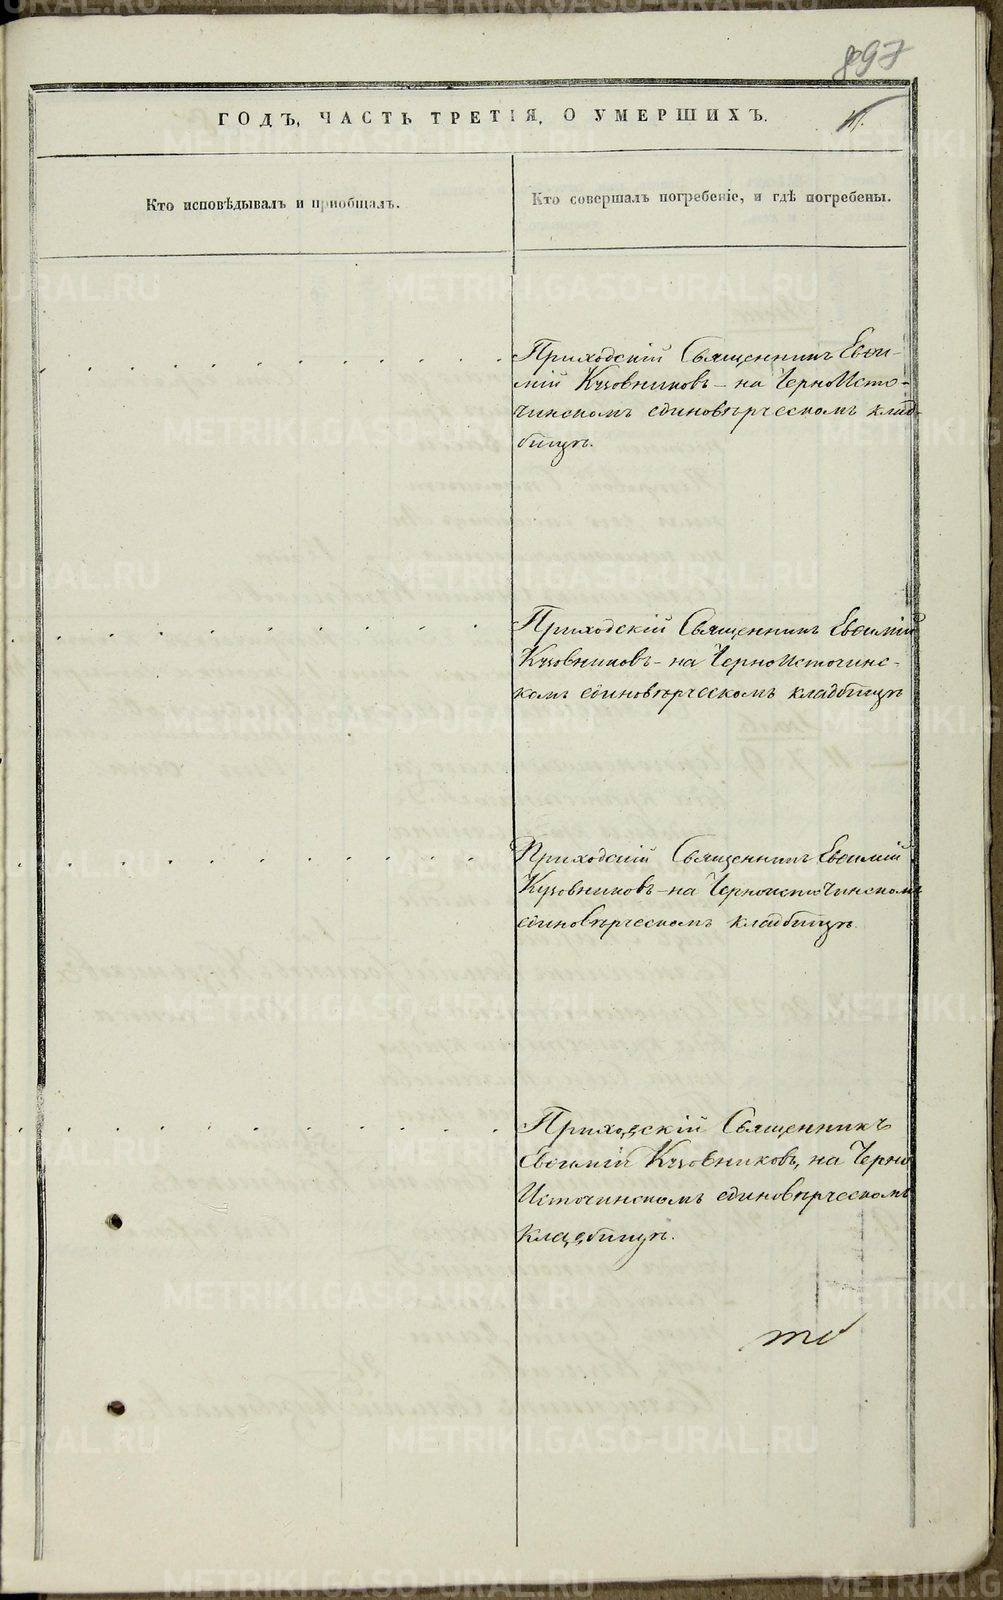 897
ГОДЪ, ЧАСТЬ ТРЕТІЯ, О УМЕРШИХЪ.
Кто исповѣдывалъ и пріобщалъ.
Кто совершалъ погребеніе, и гдѣ погребены.
Приходскій Священникъ Евѳи-
мій Кузовниковъ - на ЧерноИсто-
чинскомъ единовѣрческомъ клад-
бищѣ.
Приходскій Священникъ Евѳимій
Кузовниковъ - на Черноисточинс-
комъ единовѣрческомъ кладбищѣ
Приходскій Священникъ Евѳимій
Кузовниковъ - на Черноисточинскомъ
единовѣрческомъ кладбищѣ.
Приходскій Священникъ
Евѳимій Кузовниковъ, на Черно
Источинскомъ единовѣрческомъ
кладбищѣ.
METRIKI.GASO-URAL.RU